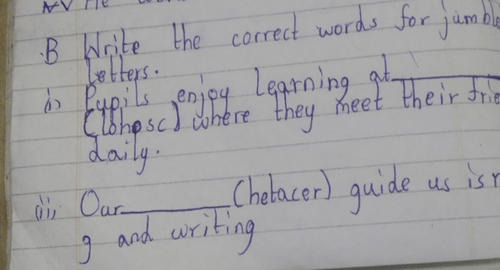 B Write the correct words for jumble
letters.
i) Pupils enjoy learning at
(lohosc) where they meet their frie
daily.
(ii, Our (hetacer) guide us is
g and writing